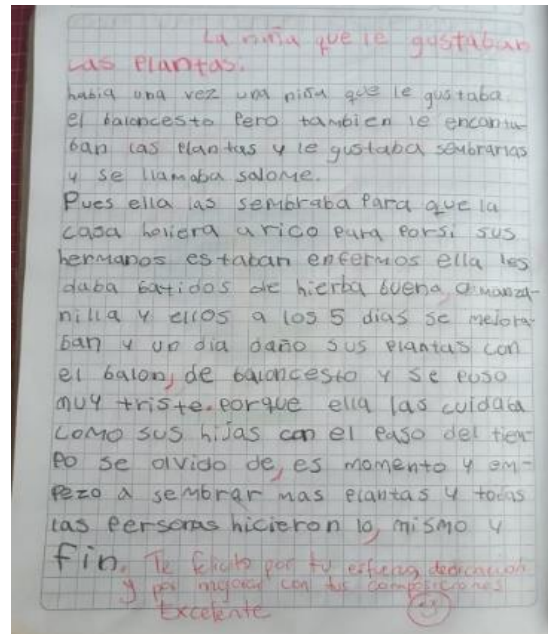 La niña que le gustaban
Las plantas.
había una vez una niña que le gustaba
el baloncesto pero tambien le encanta-
ban las plantas y le gustaba sembrarlas
y se llamaba salome.
Pues ella las sembraba para que la
casa holiera a rico para porsi sus
hermanos estaban enfermos ella les
daba batidos de hierba buena, o manza-
nilla y ellos a los 5 dias se mejora-
ban y un dia daño sus plantas con
el balon, de baloncesto y se puso
muy triste. porque ella las cuidaba
como sus hijas con el paso del tiem-
po se olvido de, es momento y em-
pezo a sembrar mas plantas y todas
las personas hicieron lo, mismo y
fin. Te felicito por tu esfuerzo, dedicación
y por mejorar con tus composiciones
Excelente